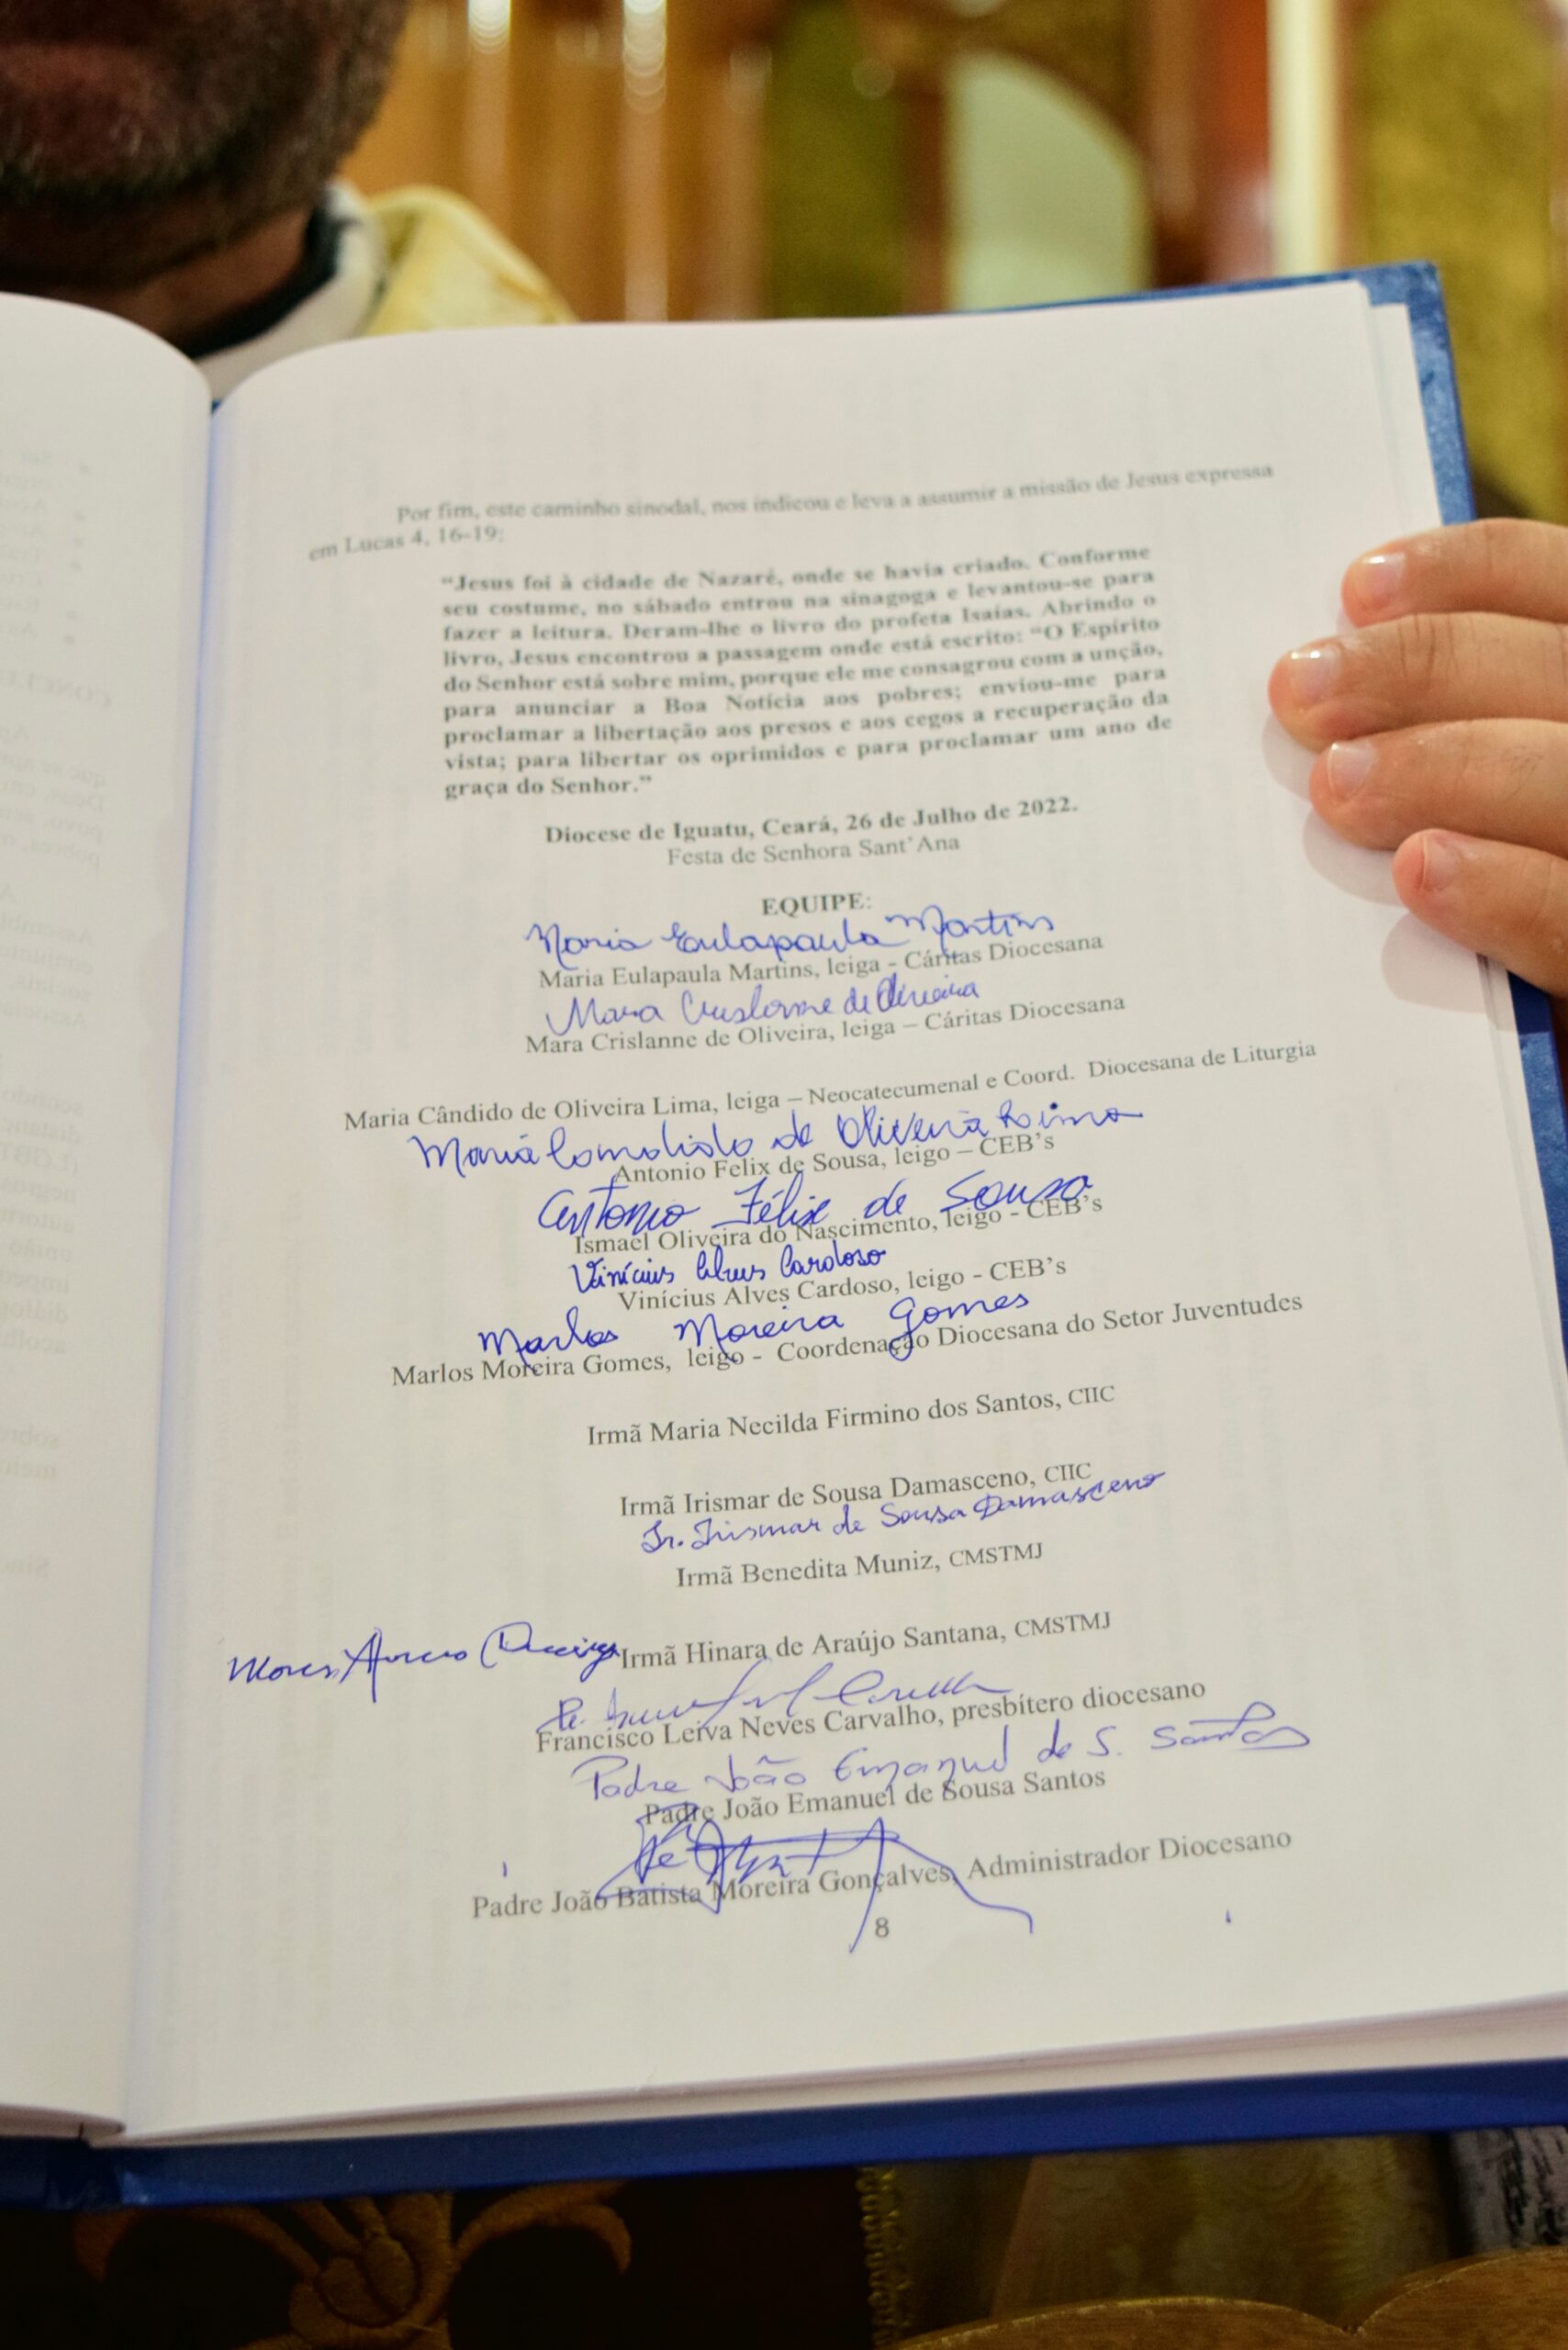 Por fim, este caminho sinodal, nos indicou e leva a assumir a missão de Jesus expressa
em Lucas 4, 16-19:
“Jesus foi à cidade de Nazaré, onde se havia criado. Conforme
seu costume, no sábado entrou na sinagoga e levantou-se para
fazer a leitura. Deram-lhe o livro do profeta Isaías. Abrindo o
livro, Jesus encontrou a passagem onde está escrito: “O Espírito
do Senhor está sobre mim, porque ele me consagrou com a unção,
para anunciar a Boa Notícia aos pobres; enviou-me para
proclamar a libertação aos presos e aos cegos a recuperação da
vista; para libertar os oprimidos e para proclamar um ano de
graça do Senhor.”
Diocese de Iguatu, Ceará, 26 de Julho de 2022.
Festa de Senhora Sant’Ana
EQUIPE:
Maria Eulapaula Martins
Maria Eulapaula Martins, leiga - Cáritas Diocesana
Mara Crislanne de Oliveira
Mara Crislanne de Oliveira, leiga – Cáritas Diocesana
Maria Cândido de Oliveira Lima, leiga – Neocatecumenal e Coord. Diocesana de Liturgia
Maria Candido de Oliveira Lima
Antonio Felix de Sousa, leigo – CEB’s
Antonio Félix de Sousa
Ismael Oliveira do Nascimento, leigo - CEB’s
Vinícius Alves Cardoso
Vinícius Alves Cardoso, leigo - CEB’s
Marlos Moreira Gomes
Marlos Moreira Gomes, leigo - Coordenação Diocesana do Setor Juventudes
Irmã Maria Necilda Firmino dos Santos, CIIC
Irmã Irismar de Sousa Damasceno, CIIC
Ir. Irismar de Sousa Damasceno
Irmã Benedita Muniz, CMSTMJ
Irmã Hinara de Araújo Santana, CMSTMJ
Pe.
Francisco Leiva Neves Carvalho, presbítero diocesano
Padre João Emanuel de S. Santos
Padre João Emanuel de Sousa Santos
Pe
Padre João Batista Moreira Gonçalves, Administrador Diocesano
8